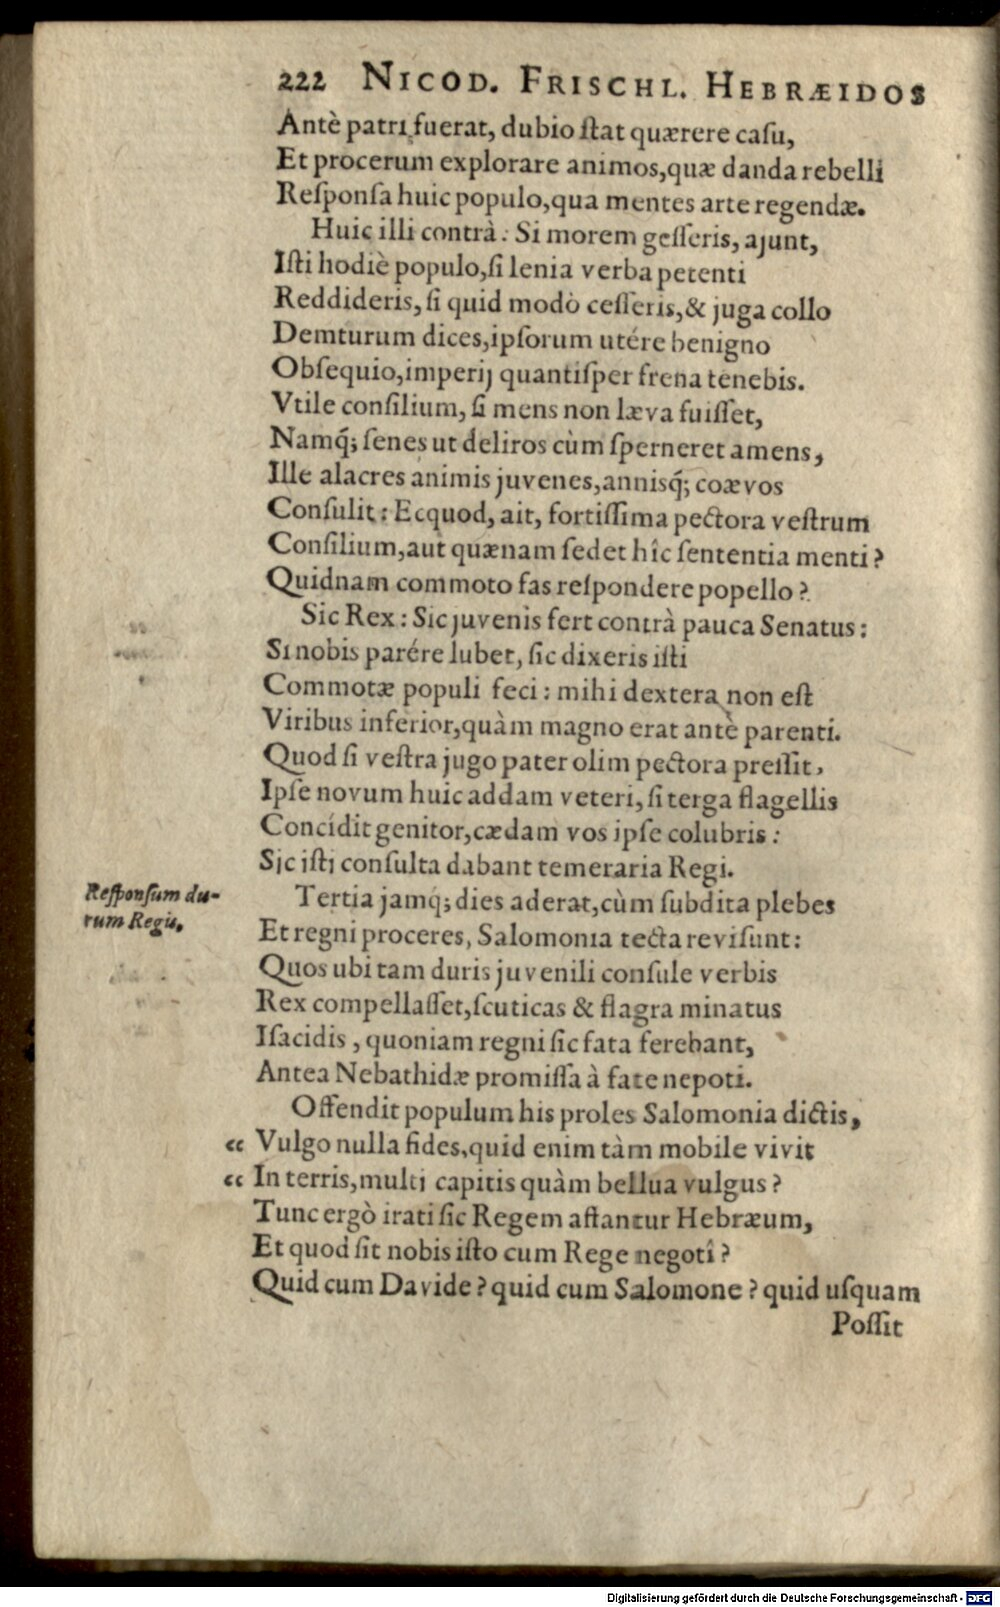 222 NICOD. FRISCHL. HEBRÆIDOS
Antè patri fuerat, dubio ſtat quærere caſu,
Et procerum explorare animos,quæ danda rebelli
Reſponſa huic populo,qua mentes arte regendæ.
Huic illi contrà: Si morem geſſeris, ajunt,
Iſti hodiè populo,ſi lenia verba petenti
Reddideris, ſi quid modò ceſſeris,& juga collo
Demturum dices,ipſorum utére benigno
Obſequio,imperij quantiſper frena tenebis.
Vtile conſilium, ſi mens non læva fuiſſet,
Namq́; ſenes ut deliros cùm ſperneret amens,
Ille alacres animis juvenes,annisq́; coævos
Conſulit: Ecquod, ait, fortiſſima pectora veſtrum
Conſilium,aut quænam ſedet hîc ſententia menti?
Quidnam commoto fas reſpondere popello?
Sic Rex: Sic juvenis fert contrà pauca Senatus:
Si nobis parére lubet, ſic dixeris iſti
Commotæ populi feci: mihi dextera non eſt
Viribus inferior,quàm magno erat antè parenti.
Quod ſi veſtra jugo pater olim pectora preſſit,
Ipſe novum huic addam veteri, ſi terga flagellis
Concídit genitor,cædam vos ipſe colubris:
Sic iſti conſulta dabant temeraria Regi.
Reſponſum du-
rum Regis.
Tertia jamq́; dies aderat,cùm ſubdita plebes
Et regni proceres, Salomonia tecta reviſunt:
Quos ubi tam duris juvenili conſule verbis
Rex compellaſſet,ſcuticas & flagra minatus
Iſacidis, quoniam regni ſic fata ferebant,
Antea Nebathidæ promiſſa à fate nepoti.
Offendit populum his proles Salomonia dictis,
“ Vulgo nulla fides,quid enim tàm mobile vivit
“ In terris,multi capitis quàm bellua vulgus?
Tunc ergò irati ſic Regem affantur Hebræum,
Et quod ſit nobis iſto cum Rege negotî?
Quid cum Davide? quid cum Salomone? quid uſquam
Poſſit
Digitalisierung gefördert durch die Deutsche Forschungsgemeinschaft - DFG